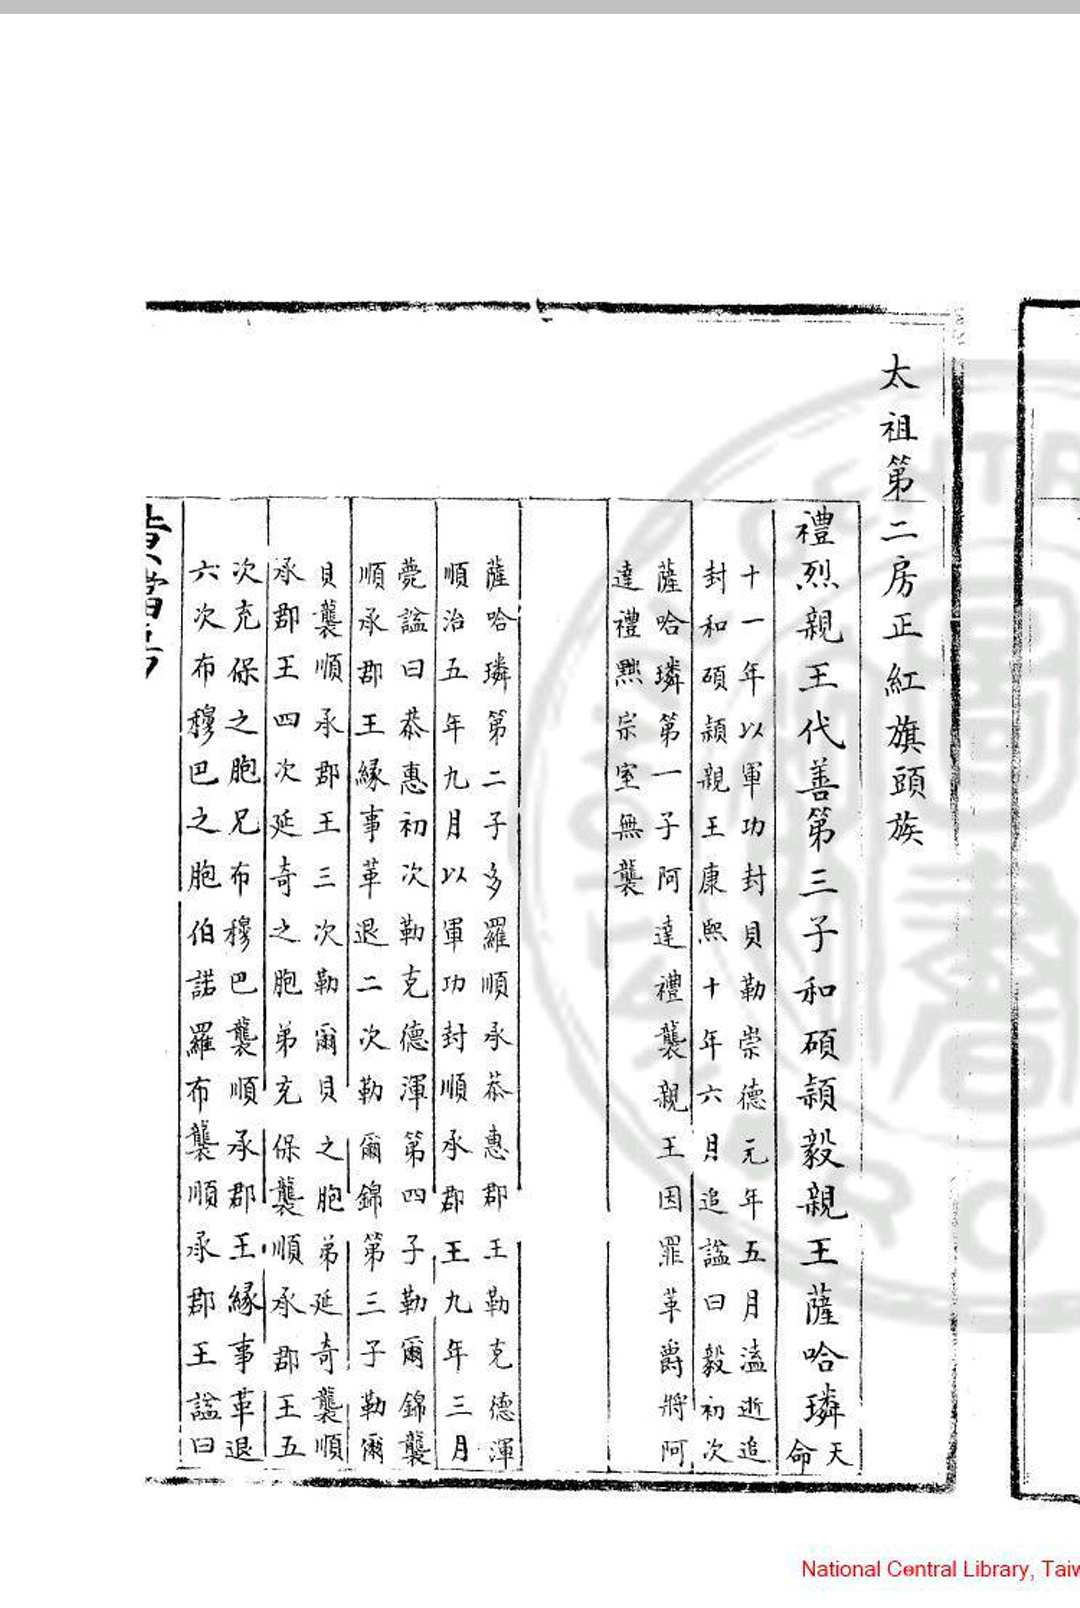 太祖第二房正紅旗頭族
禮烈親王代善第三子和碩穎毅親王薩哈璘天命
十一年以軍功封貝勒崇德元年五月溘逝追
封和碩穎親王康熙十年六月追諡曰毅初次
薩哈璘第一子阿達禮襲親王因罪革爵將阿
達禮黜宗室無襲
薩哈璘第二子多羅順承恭惠郡王勒克德渾
順治五年九月以軍功封順承郡王九年三月
薨諡曰恭惠初次勒克德渾第四子勒爾錦襲
順承郡王緣事革退二次勒爾錦第三子勒爾
貝襲順承郡王三次勒爾貝之胞弟延奇襲順
承郡王四次延奇之胞弟充保襲順承郡王五
次充保之胞兄布穆巴襲順承郡王緣事革退
六次布穆巴之胞伯諾羅布襲順承郡王諡曰
National Central Library, Taiw